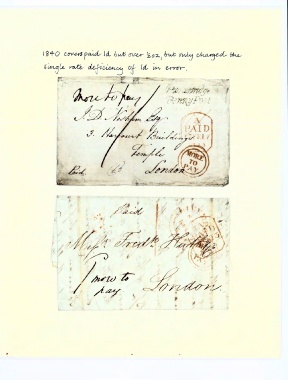 1840 covers paid 1d but over ½oz, but only charged the
single rate deficiency of 1d in error.
more to pay
J. D.
3. Harcourt Buildings
Temple
Paid
London
A
PAID
MORE
TO
PAY
Paid
Messrs Fredk Huth
more to
pay
London